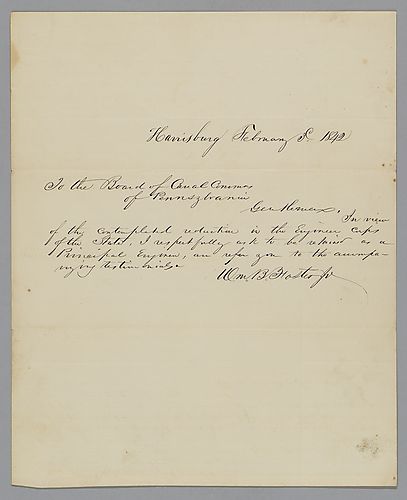 Harrisburg February 5th 1842
To the Board of Canal Commrs
of Pennsylvania
Gentlemen,
In view
of the contemplated reduction in the Engineer Corps
of the State, I respectfully ask to be retained as a
Principal Engineer, and refer you to the accompa-
nying testimonials
Wm. B. Foster Jr